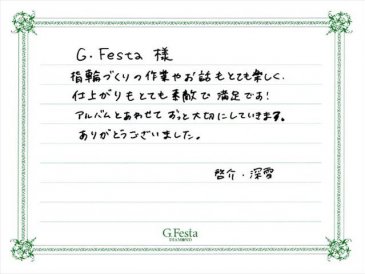 G.Festa 様
指輪づくりの作業やお話もとても楽しく、
仕上がりもとても素敵で満足です!
アルバムとあわせてずっと大切にしていきます。
ありがとうございました。
啓介・深雪
G.Festa
DIAMOND